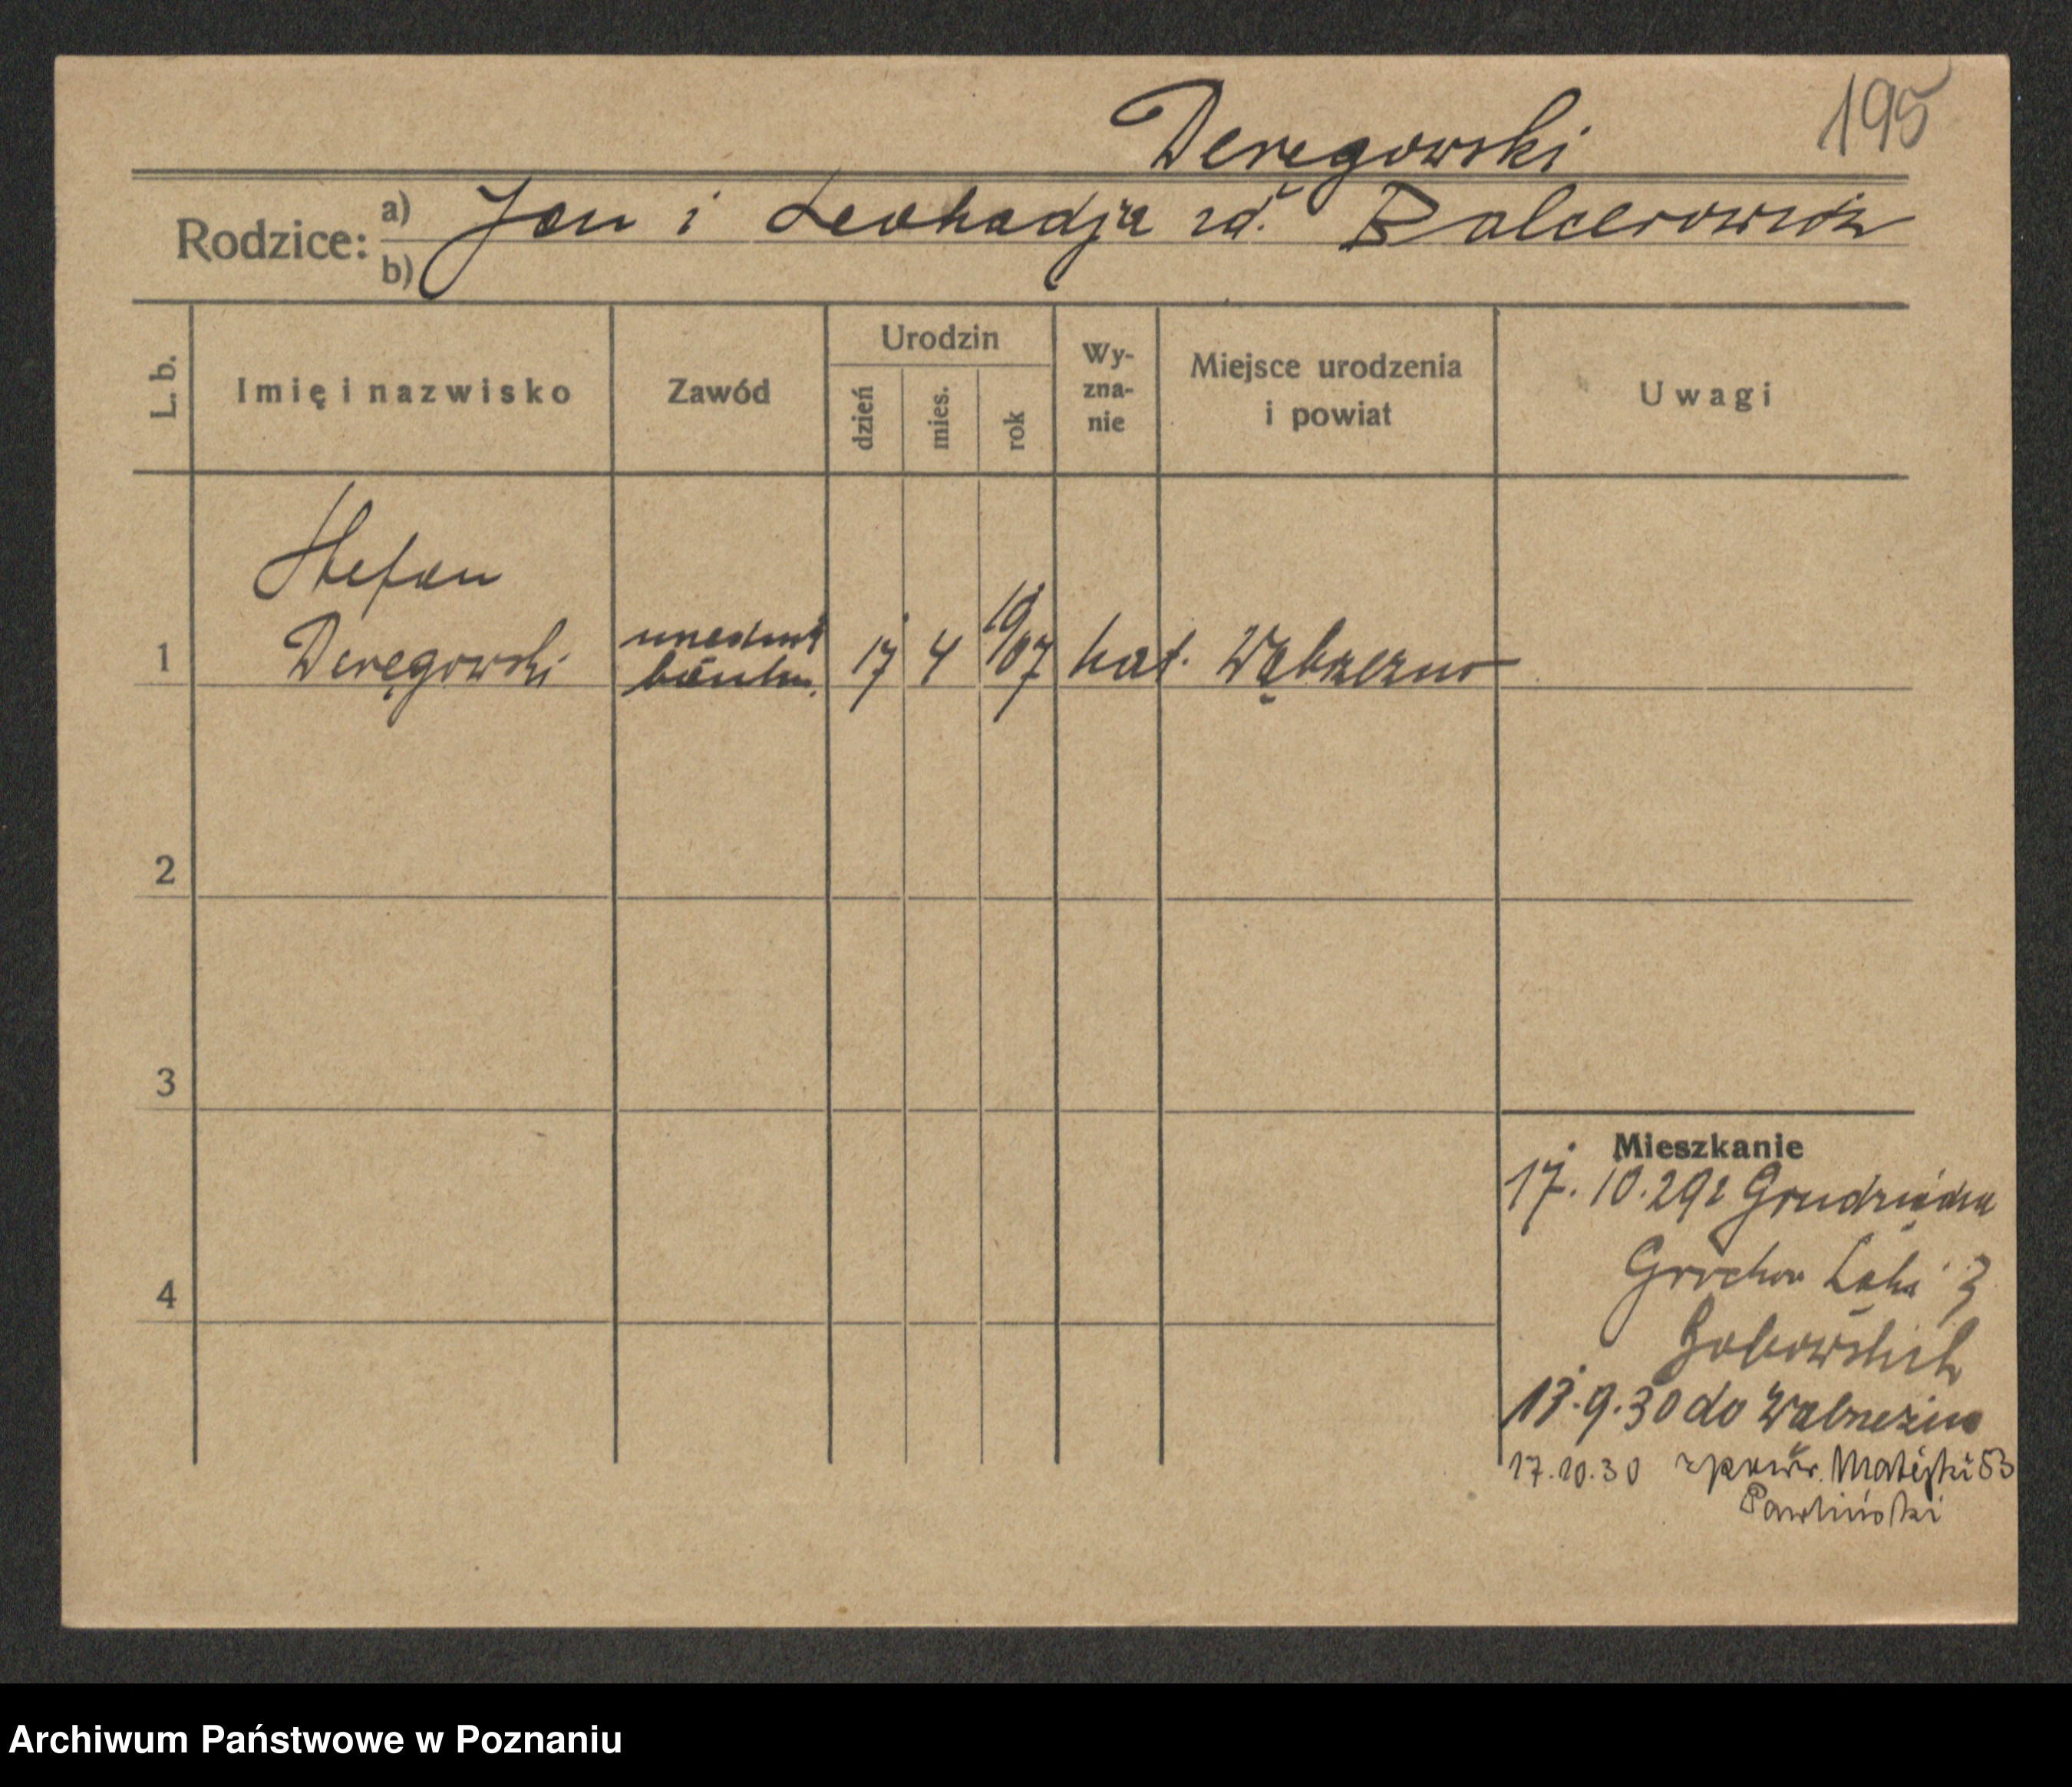 195
Deręgowski
Rodzice: a) Jan i Leokadja zd. Balcerowicz
b)
L. b.
Imię i nazwisko
Zawód
Urodzin
dzień
mies.
rok
Wy-
zna-
nie
Miejsce urodzenia
i powiat
Uwagi
Stefan
1 Deręgowski 17 4 19/07 kat. Wąbrzezno
2
3
4
Mieszkanie
17.10.29 z Grudziądza
Grochow Łąki 3
13.9.30 do Wąbrzezna
17.10.30 zpowr. Matejki 53
Pawliński
Archiwum Państwowe w Poznaniu